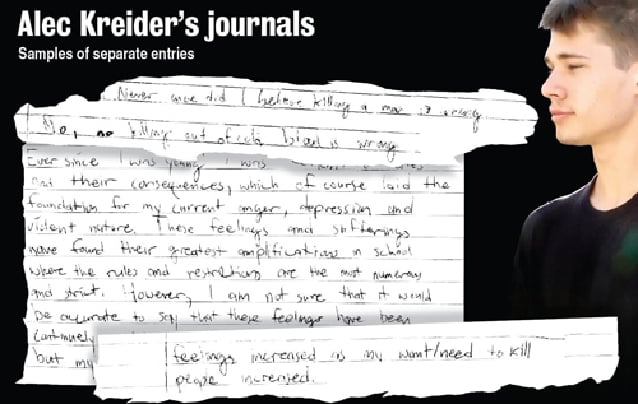 Alec Kreider's journals
Samples of separate entries
Never once did I believe killing a man is wrong
No, no killing out of cold blood is wrong
Ever since I was young I was
and their consequences, which of course laid the
foundation for my current anger, depression and
violent nature. These feelings and sufferings
have found their greatest amplifications in school
where the rules and restrictions are the most numerous
and strict. However, I am not sure that it would
be accurate to say that these feelings have been
but my
feelings increased as my want/need to kill
people increased.